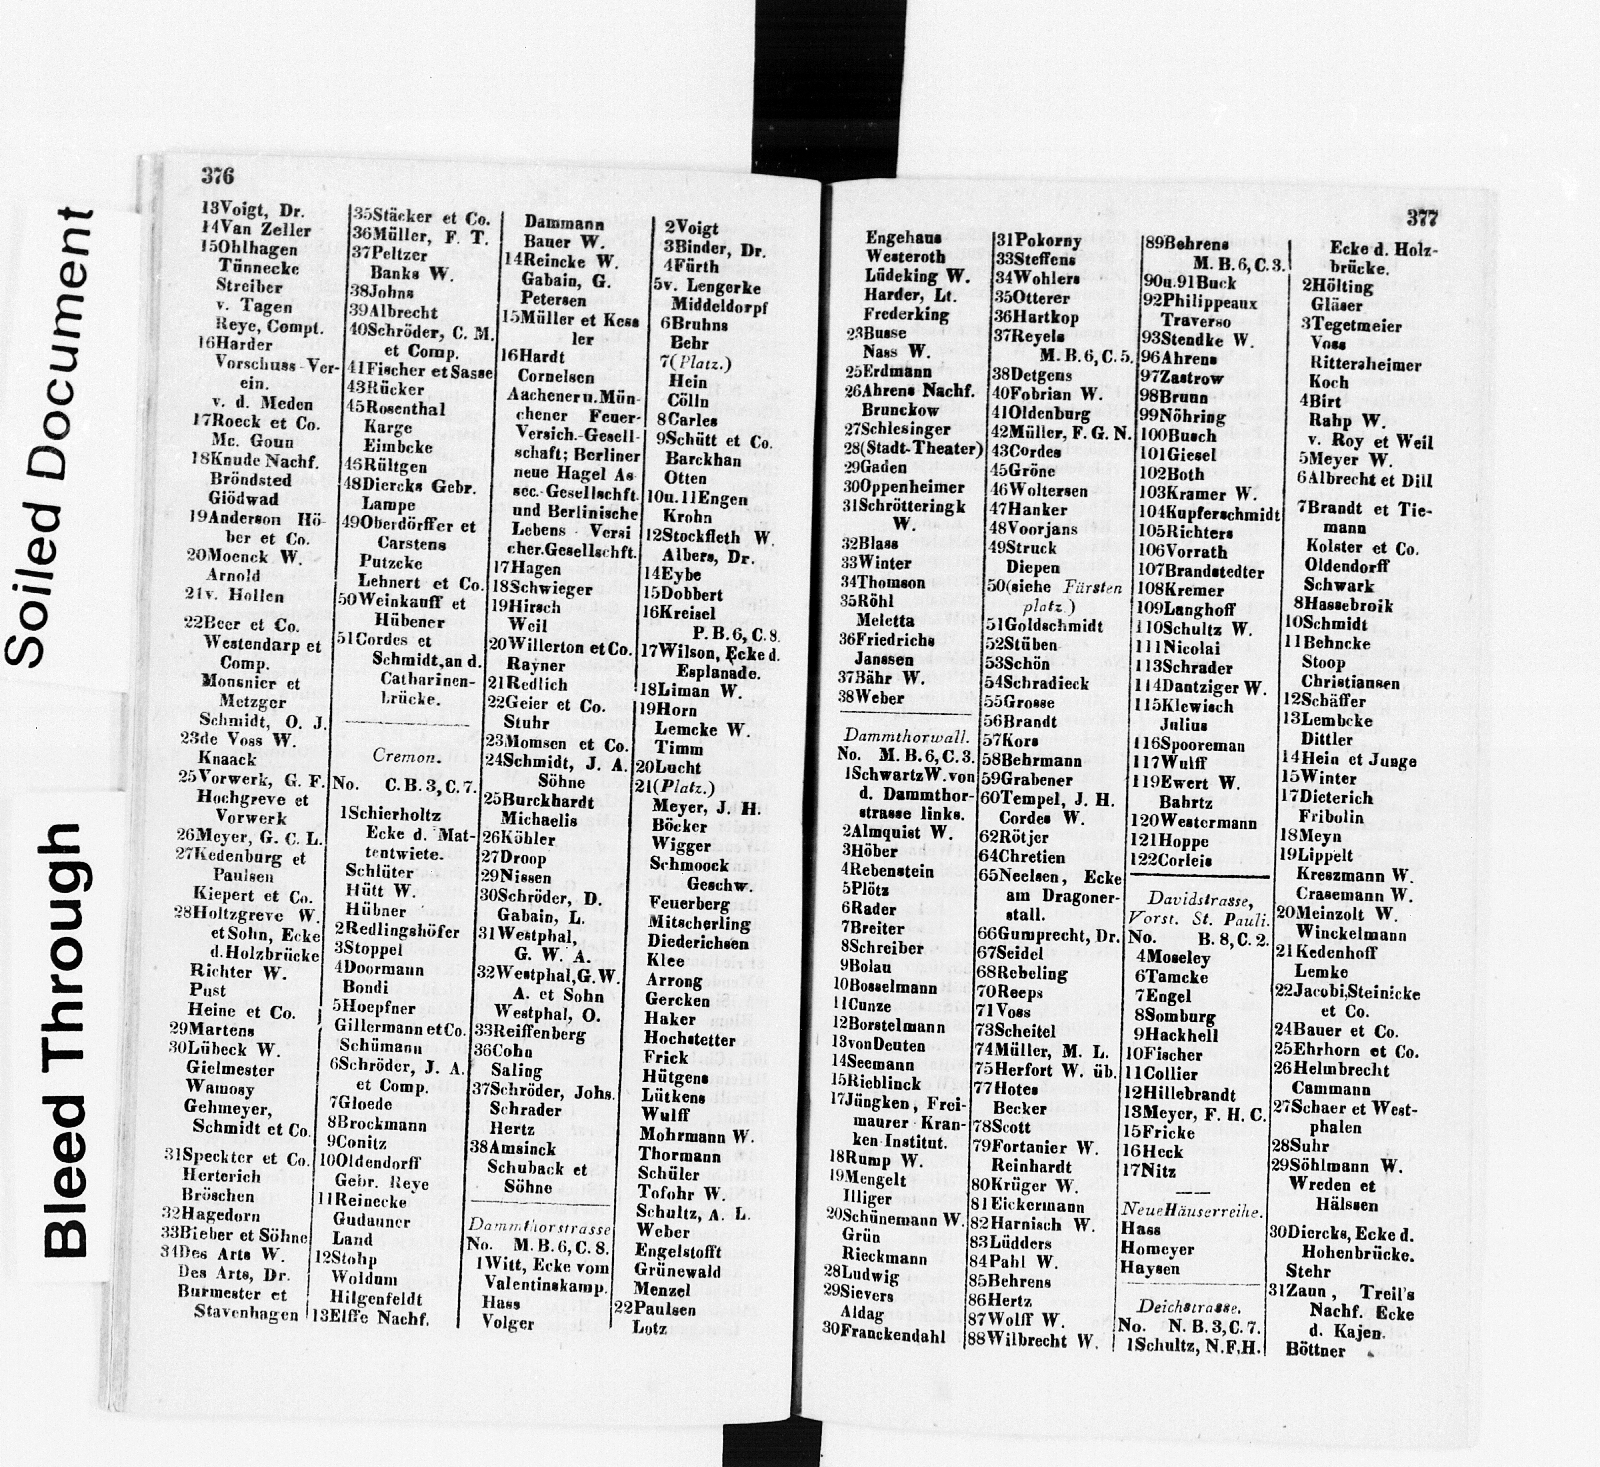 Soiled Document
Bleed Through
376
13Voigt, Dr.
14Van Zeller
15Ohlhagen
Tünnecke
Streiber
v. Tagen
Reye, Compt.
16Harder
Vorschuss-Ver-
ein.
v. d. Meden
17Roeck et Co.
Mc. Goun
18Knude Nachf.
Bröndsted
Glödwad
19Anderson Hö-
ber et Co.
20Moenck W.
Arnold
21v. Hollen
22Beer et Co.
Westendarp et
Comp.
Monsnier et
Metzger
Schmidt, O. J.
23de Voss W.
Knaack
25Vorwerk, G. F.
Hochgreve et
Vorwerk
26Meyer, G. C. L.
27Kedenburg et
Paulsen
Kiepert et Co.
28Holtzgreve W.
et Sohn, Ecke
d. Holzbrücke
Richter W.
Pust
Heine et Co.
29Martens
30Lübeck W.
Gielmester
Wamosy
Gehmeyer,
Schmidt et Co.
31Speckter et Co.
Herterich
Bröschen
32Hagedorn
33Bieber et Söhne
34Des Arts W.
Des Arts, Dr.
Burmester et
Stavenhagen
35Stäcker et Co.
36Müller, F. T.
37Peltzer
Banks W.
38Johns
39Albrecht
40Schröder, C. M.
et Comp.
41Fischer et Sasse
43Rücker
45Rosenthal
Karge
Eimbcke
46Rültgen
48Diercks Gebr.
Lampe
49Oberdörffer et
Carstens
Putzcke
Lehnert et Co.
50Weinkauff et
Hübener
51Cordes et
Schmidt,an d.
Catharinen-
brücke.
Cremon.
No. C. B. 3, C. 7.
1Schierholtz
Ecke d. Mat-
tentwiete.
Schlüter
Hütt W.
Hübner
2Redlingshöfer
3Stoppel
4Doormann
Bondi
5Hoepfner
Gillermann et Co.
Schümann
6Schröder, J. A.
et Comp.
7Gloede
8Brockmann
9Conitz
10Oldendorff
Gebr. Reye
11Reinecke
Gudauner
Land
12Stohp
Woldum
Hilgenfeldt
13Elffe Nachf.
Dammann
Bauer W.
14Reincke W.
Gabain, G.
Petersen
15Müller et Kess
ler
16Hardt
Cornelsen
Aachener u. Mün-
chener Feuer-
Versich.-Gesell-
schaft; Berliner
neue Hagel As-
sec.-Gesellschft.
und Berlinische
Lebens-Versi
cher.Gesellschft.
17Hagen
18Schwieger
19Hirsch
Weil
20Willerton et Co.
Rayner
21Redlich
22Geier et Co.
Stuhr
23Momsen et Co.
24Schmidt, J. A.
Söhne
25Burckhardt
Michaelis
26Köhler
27Droop
29Nissen
30Schröder, D.
Gabain, L.
31Westphal,
G. W. A.
32Westphal,G.W.
A. et Sohn
Westphal, O.
33Reiffenberg
36Cohn
Saling
37Schröder, Johs.
Schrader
Hertz
38Amsinck
Schuback et
Söhne
Dammthorstrasse
No. M. B. 6, C. 8.
1Witt, Ecke vom
Valentinskamp.
Hass
Volger
2Voigt
3Binder, Dr.
4Fürth
5v. Lengerke
Middeldorpf
6Bruhns
Behr
7(Platz.)
Hein
Cölln
8Carles
9Schütt et Co.
Barckhan
Otten
10u.11Engen
Krohn
12Stockfleth W.
Albers, Dr.
14Eybe
15Dobbert
16Kreisel
P. B. 6, C. 8.
17Wilson, Ecke d.
Esplanade.
18Liman W.
19Horn
Lemcke W.
Timm
20Lucht
21(Platz.)
Meyer, J. H.
Böcker
Wigger
Schmoock
Geschw.
Feuerberg
Mitscherling
Diederichsen
Klee
Arrong
Gercken
Haker
Hochstetter
Frick
Hütgens
Lütkens
Wulff
Mohrmann W.
Thormann
Schüler
Tofohr W.
Schultz, A. L.
Weber
Engelstofft
Grünewald
Menzel
22Paulsen
Lotz
377
Engehaus
Westeroth
Lüdeking W.
Harder, Lt.
Frederking
23Busse
Nass W.
25Erdmann
26Ahrens Nachf.
Brunckow
27Schlesinger
28(Stadt-Theater)
29Gaden
30Oppenheimer
31Schrötteringk
W.
32Blass
33Winter
34Thomson
35Röhl
Meletta
36Friedrichs
Janssen
37Bähr W.
38Weber
Dammthorwall.
No. M. B. 6, C. 3.
1Schwartz W. von
d. Dammthor-
strasse links.
2Almquist W.
3Höber
4Rebenstein
5Plötz
6Rader
7Breiter
8Schreiber
9Bolau
10Bosselmann
11Cunze
12Borstelmann
13von Deuten
14Seemann
15Rieblinck
17Jüngken, Frei-
maurer Kran-
ken Institut.
18Rump W.
19Mengelt
Illiger
20Schünemann W.
Grün
Rieckmann
28Ludwig
29Sievers
Aldag
30Franckendahl
31Pokorny
33Steffens
34Wohlers
35Otterer
36Hartkop
37Reyels
M. B. 6, C. 5.
38Detgens
40Fobrian W.
41Oldenburg
42Müller, F. G. N.
43Cordes
45Gröne
46Woltersen
47Hanker
48Voorjans
49Struck
Diepen
50(siehe Fürsten
platz.)
51Goldschmidt
52Stüben
53Schön
54Schradieck
55Grosse
56Brandt
57Kors
58Behrmann
59Grabener
60Tempel, J. H.
Cordes W.
62Rötjer
64Chretien
65Neelsen, Ecke
am Dragoner-
stall.
66Gumprecht, Dr.
67Seidel
68Rebeling
70Reeps
71Voss
73Scheitel
74Müller, M. L.
75Herfort W. üb.
77Hotes
Becker
78Scott
79Fortanier W.
Reinhardt
80Krüger W.
81Eickermann
82Harnisch W.
83Lüdders
84Pahl W.
85Behrens
86Hertz
87Wolff W.
88Wilbrecht W.
89Behrens
M. B. 6, C. 3.
90u.91Buck
92Philippeaux
Traverso
93Stendke W.
96Ahrens
97Zastrow
98Brunn
99Nöhring
100Busch
101Giesel
102Both
103Kramer W.
104Kupferschmidt
105Richters
106Vorrath
107Brandstedter
108Kremer
109Langhoff
110Schultz W.
111Nicolai
113Schrader
114Dantziger W.
115Klewisch
Julius
116Spooreman
117Wulff
119Ewert W.
Bahrtz
120Westermann
121Hoppe
122Corleis
Davidstrasse,
Vorst. St. Pauli.
No. B. 8, C. 2.
4Moseley
6Tamcke
7Engel
8Somburg
9Hackhell
10Fischer
11Collier
12Hillebrandt
13Meyer, F. H. C.
15Fricke
16Heck
17Nitz
Neue Häuserreihe.
Hass
Homeyer
Haysen
Deichstrasse.
No. N. B. 3, C. 7.
1Schultz, N.F.H.
Ecke d. Holz-
brücke.
2Hölting
Gläser
3Tegetmeier
Voss
Rittersheimer
Koch
4Birt
Rahp W.
v. Roy et Weil
5Meyer W.
6Albrecht et Dill
7Brandt et Tie-
mann
Kolster et Co.
Oldendorff
Schwark
8Hassebroik
10Schmidt
11Behncke
Stoop
Christiansen
12Schäffer
13Lembcke
Dittler
14Hein et Junge
15Winter
17Dieterich
Fribolin
18Meyn
19Lippelt
Kreszmann W.
Crasemann W.
20Meinzolt W.
Winckelmann
21Kedenhoff
Lemke
22Jacobi,Steinicke
et Co.
24Bauer et Co.
25Ehrhorn et Co.
26Helmbrecht
Cammann
27Schaer et West-
phalen
28Suhr
29Söhlmann W.
Wreden et
Hälssen
30Diercks, Ecke d.
Hohenbrücke.
Stehr
31Zaun, Treil's
Nachf. Ecke
d. Kajen.
Böttner